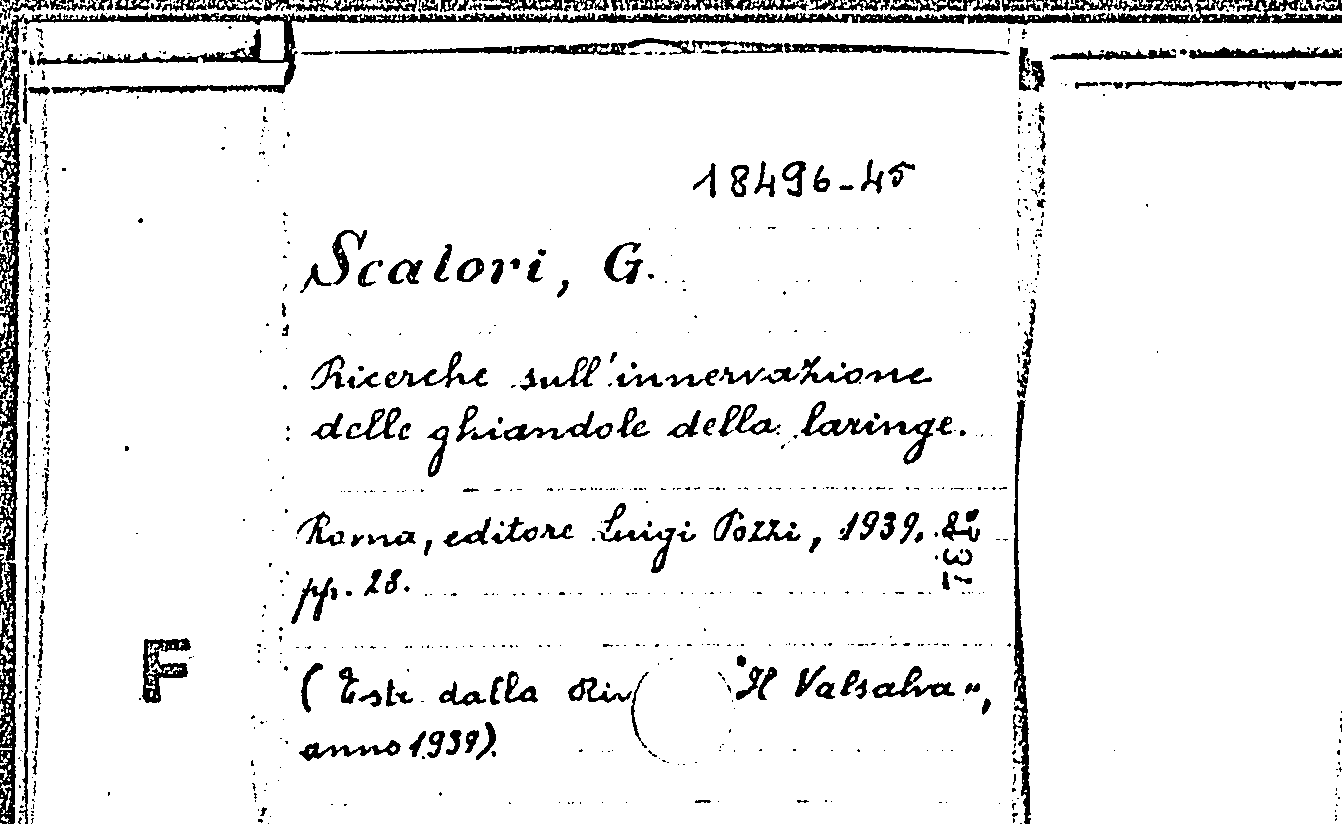 18496-45
Scalori, G.
Ricerche sull'innervazione
delle ghiandole della laringe.
Roma, editore Luigi Pozzi, 1939.
pp. 28.
F
(Estr. dalla Riv "Il Valsalva",
anno 1939).